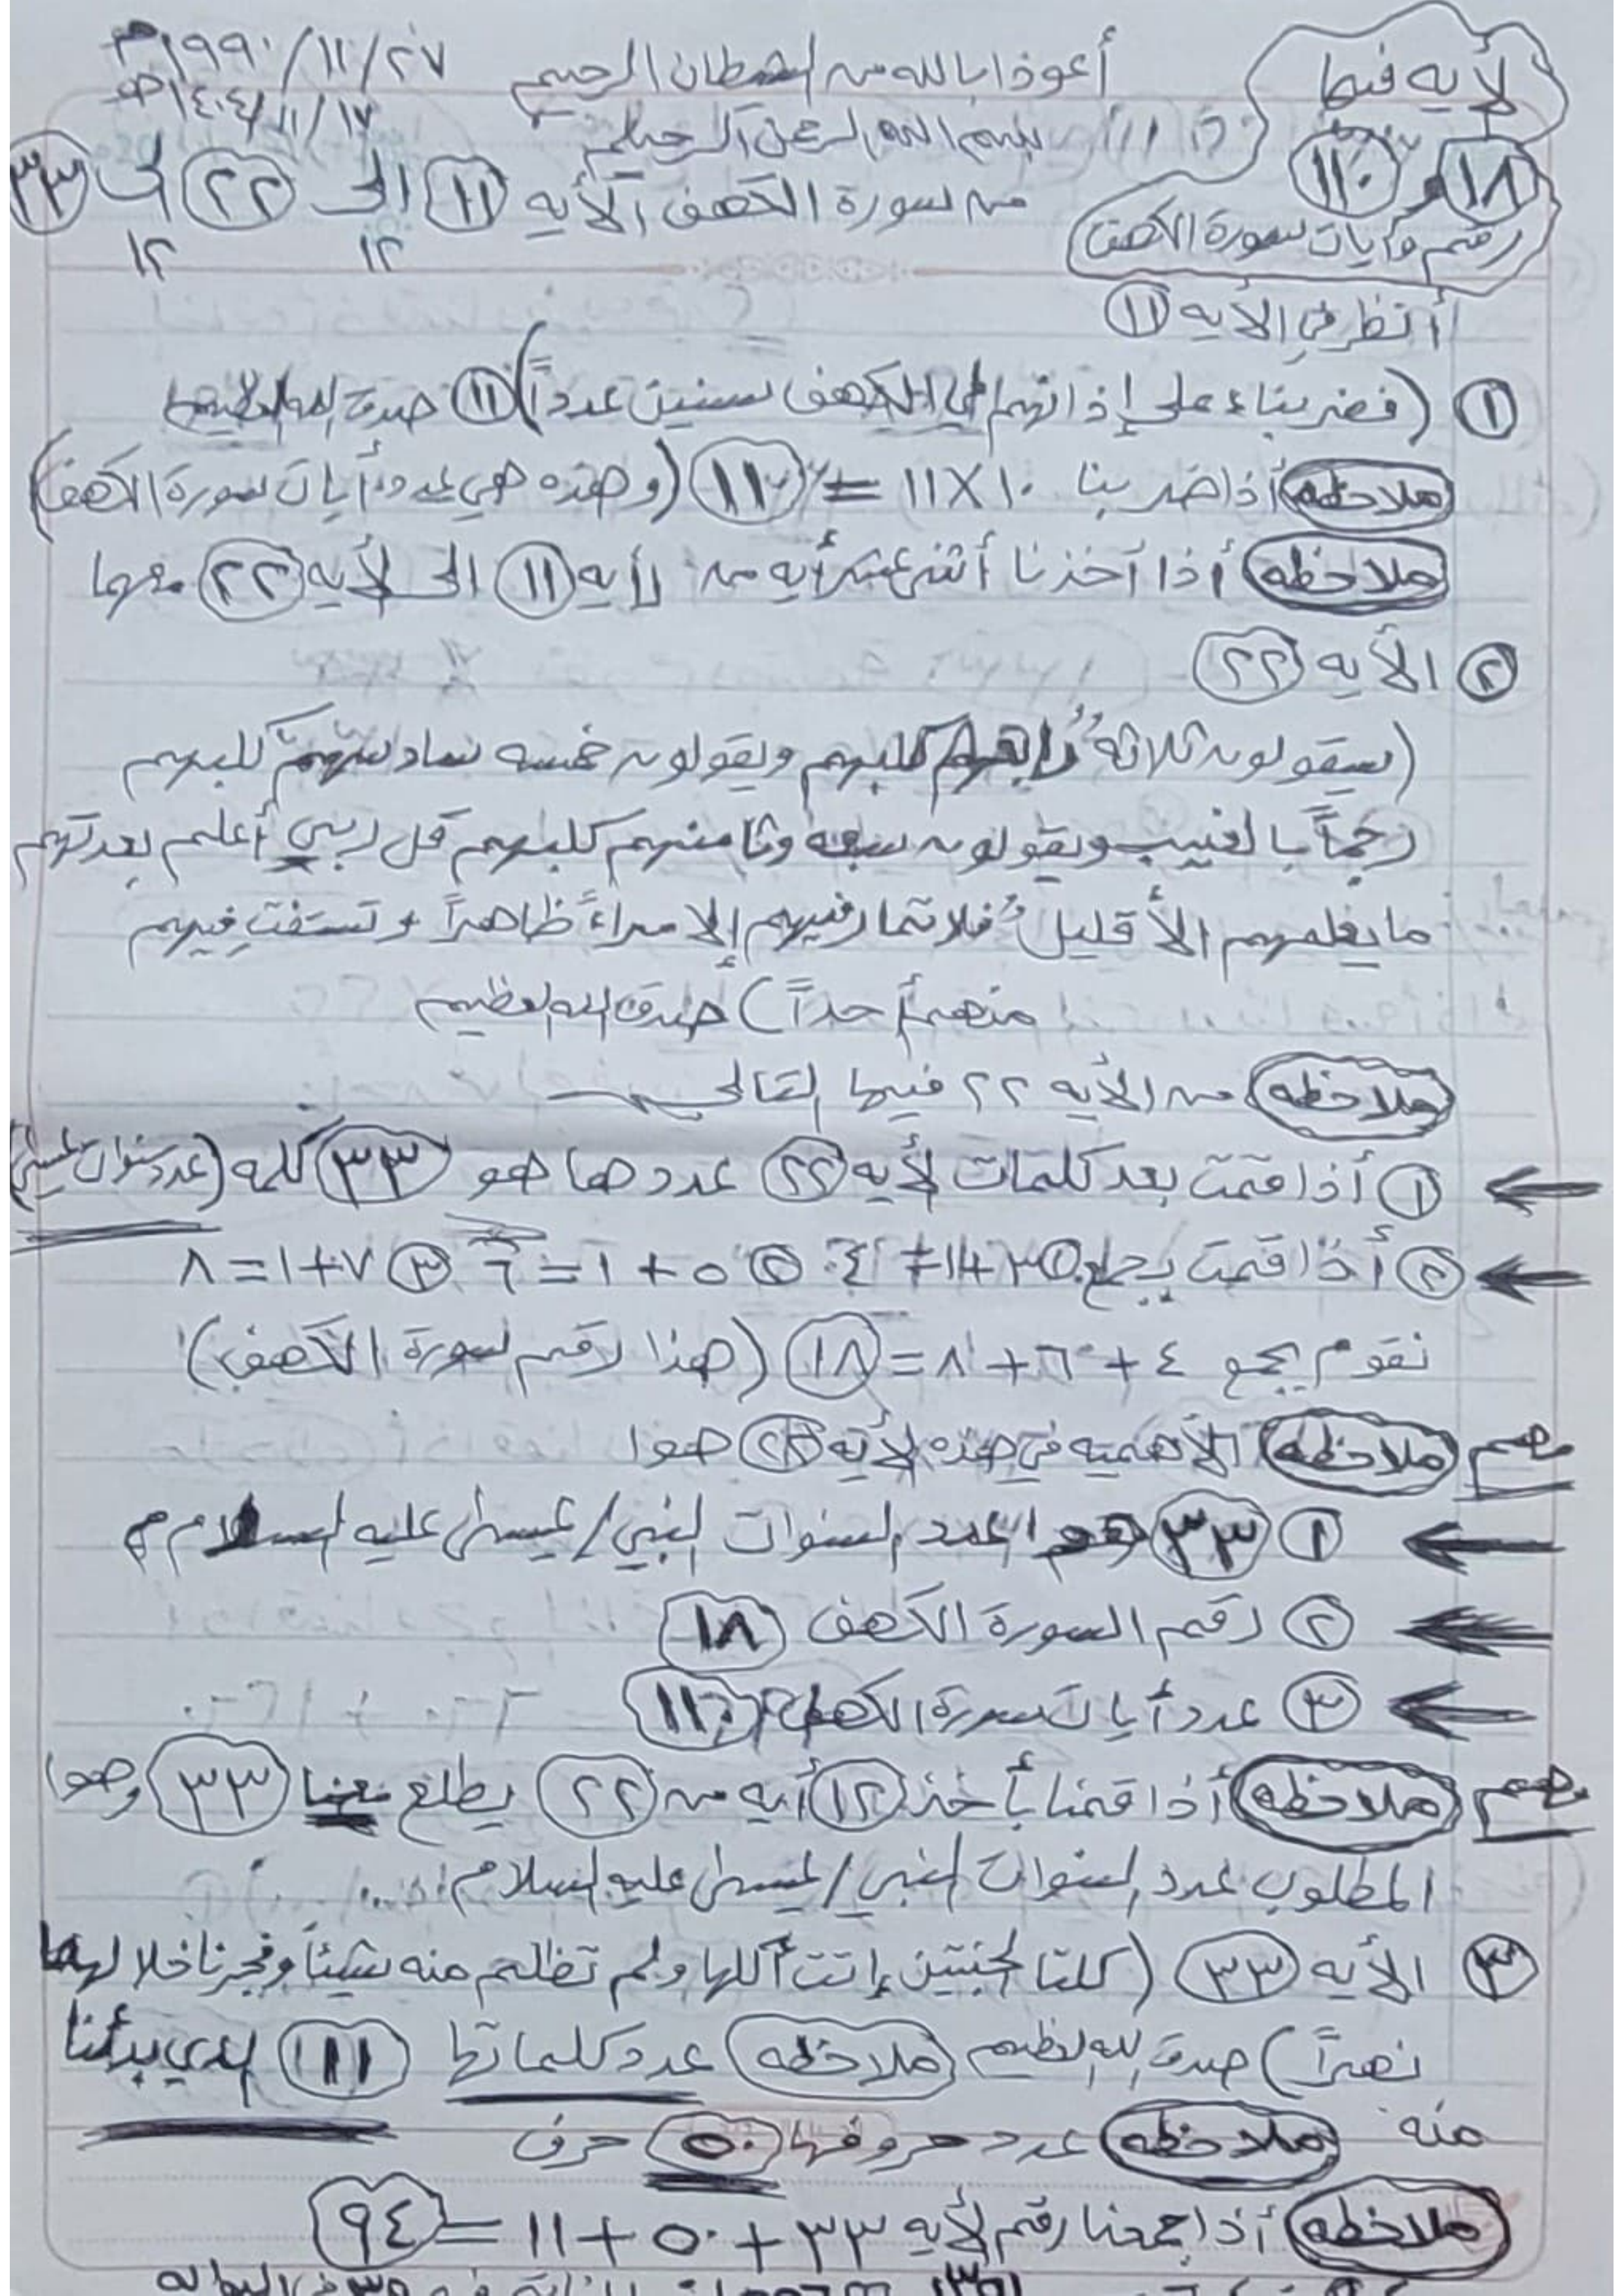 ٢٧/١١/١٩٩٠م
١٧/١١/١٤٠٤هـ
أعوذ بالله من الشطان الرجيم
بسم الله الرحمن الرحيم
لأيه فيها
١٨ و ١١٠
رقم وأيات سورة الكهف
من سورة الكهف الأيه ١١ الى ٢٢ الى ٣٣
١٢ ١٢
أنظر في الأيه ١١
١ (فضربناء على إذانهم في الكهف سنين عدداً) ١١ صدق الله العظيم
ملاحظه أذا ضربنا ١٠ × ١١ = ١١٠ (وهذه هي عدد أيات سورة الكهف)
ملاحظه أذا أخذنا أثنى عشر أيه من لأيه ١١ الى لأيه ٢٢ معها
٢ الأيه ٢٢
(سيقولون ثلاثهُ رُابعهم كلبهم ويقولون خمسه سادسهم كلبهم
رجماً بالغيب ويقولون سبعه وثامنهم كلبهم قل ربي أعلم بعدتهم
ما يعلمهم الأ قليلُ فلا تمار فيهم إلا مراءً ظاهراً و تستفتِ فيهم
منهم أحداً) صدق الله العظيم
ملاحظه من الأيه ٢٢ فيها التالي
١ أذا قمت بعد كلمات لأيه ٢٢ عددها هو ٣٣ كلمه (عدد سنوات عيسى)
٢ أذا قمت بجمع ١ ٣+١=٤ ٢ ٥+١=٦ ٣ ٧+١=٨
نقوم بجمع ٤+٦+٨=١٨ (هذا رقم سورة الكهف)
مهم ملاحظه الأهميه في هذه لأيه ٢٢ هوا
١ ٣٣ هو العدد السنوات النبي/عيسى عليه السلام
٢ رقم السورة الكهف ١٨
٣ عدد أيات سورة الكهف ١١٠
مهم ملاحظه أذا قمنا بأخذ ١٢ أيه من ٢٢ يطلع معنا ٣٣ وهوا
المطلوب عدد السنوات النبي/عيسى عليه السلام
٣ الأيه ٣٣ (كلتا الجنتين إتت أكلها ولم تظلم منه شيئاً وفجرنا خلالهما
نهراً) صدق الله العظيم ملاحظه عدد كلماتها ١١ الذي بدأنا
منه ملاحظه عدد حروفها ٥٠ حرف
ملاحظه أذا جمعنا رقم لأيه ٣٣ + ٥٠ + ١١ = ٩٤